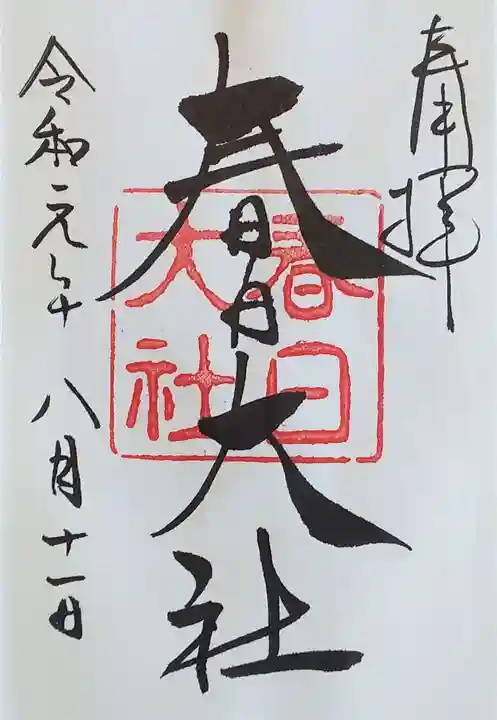 奉拝
春日大社
春日
大社
令和元年 八月十一日